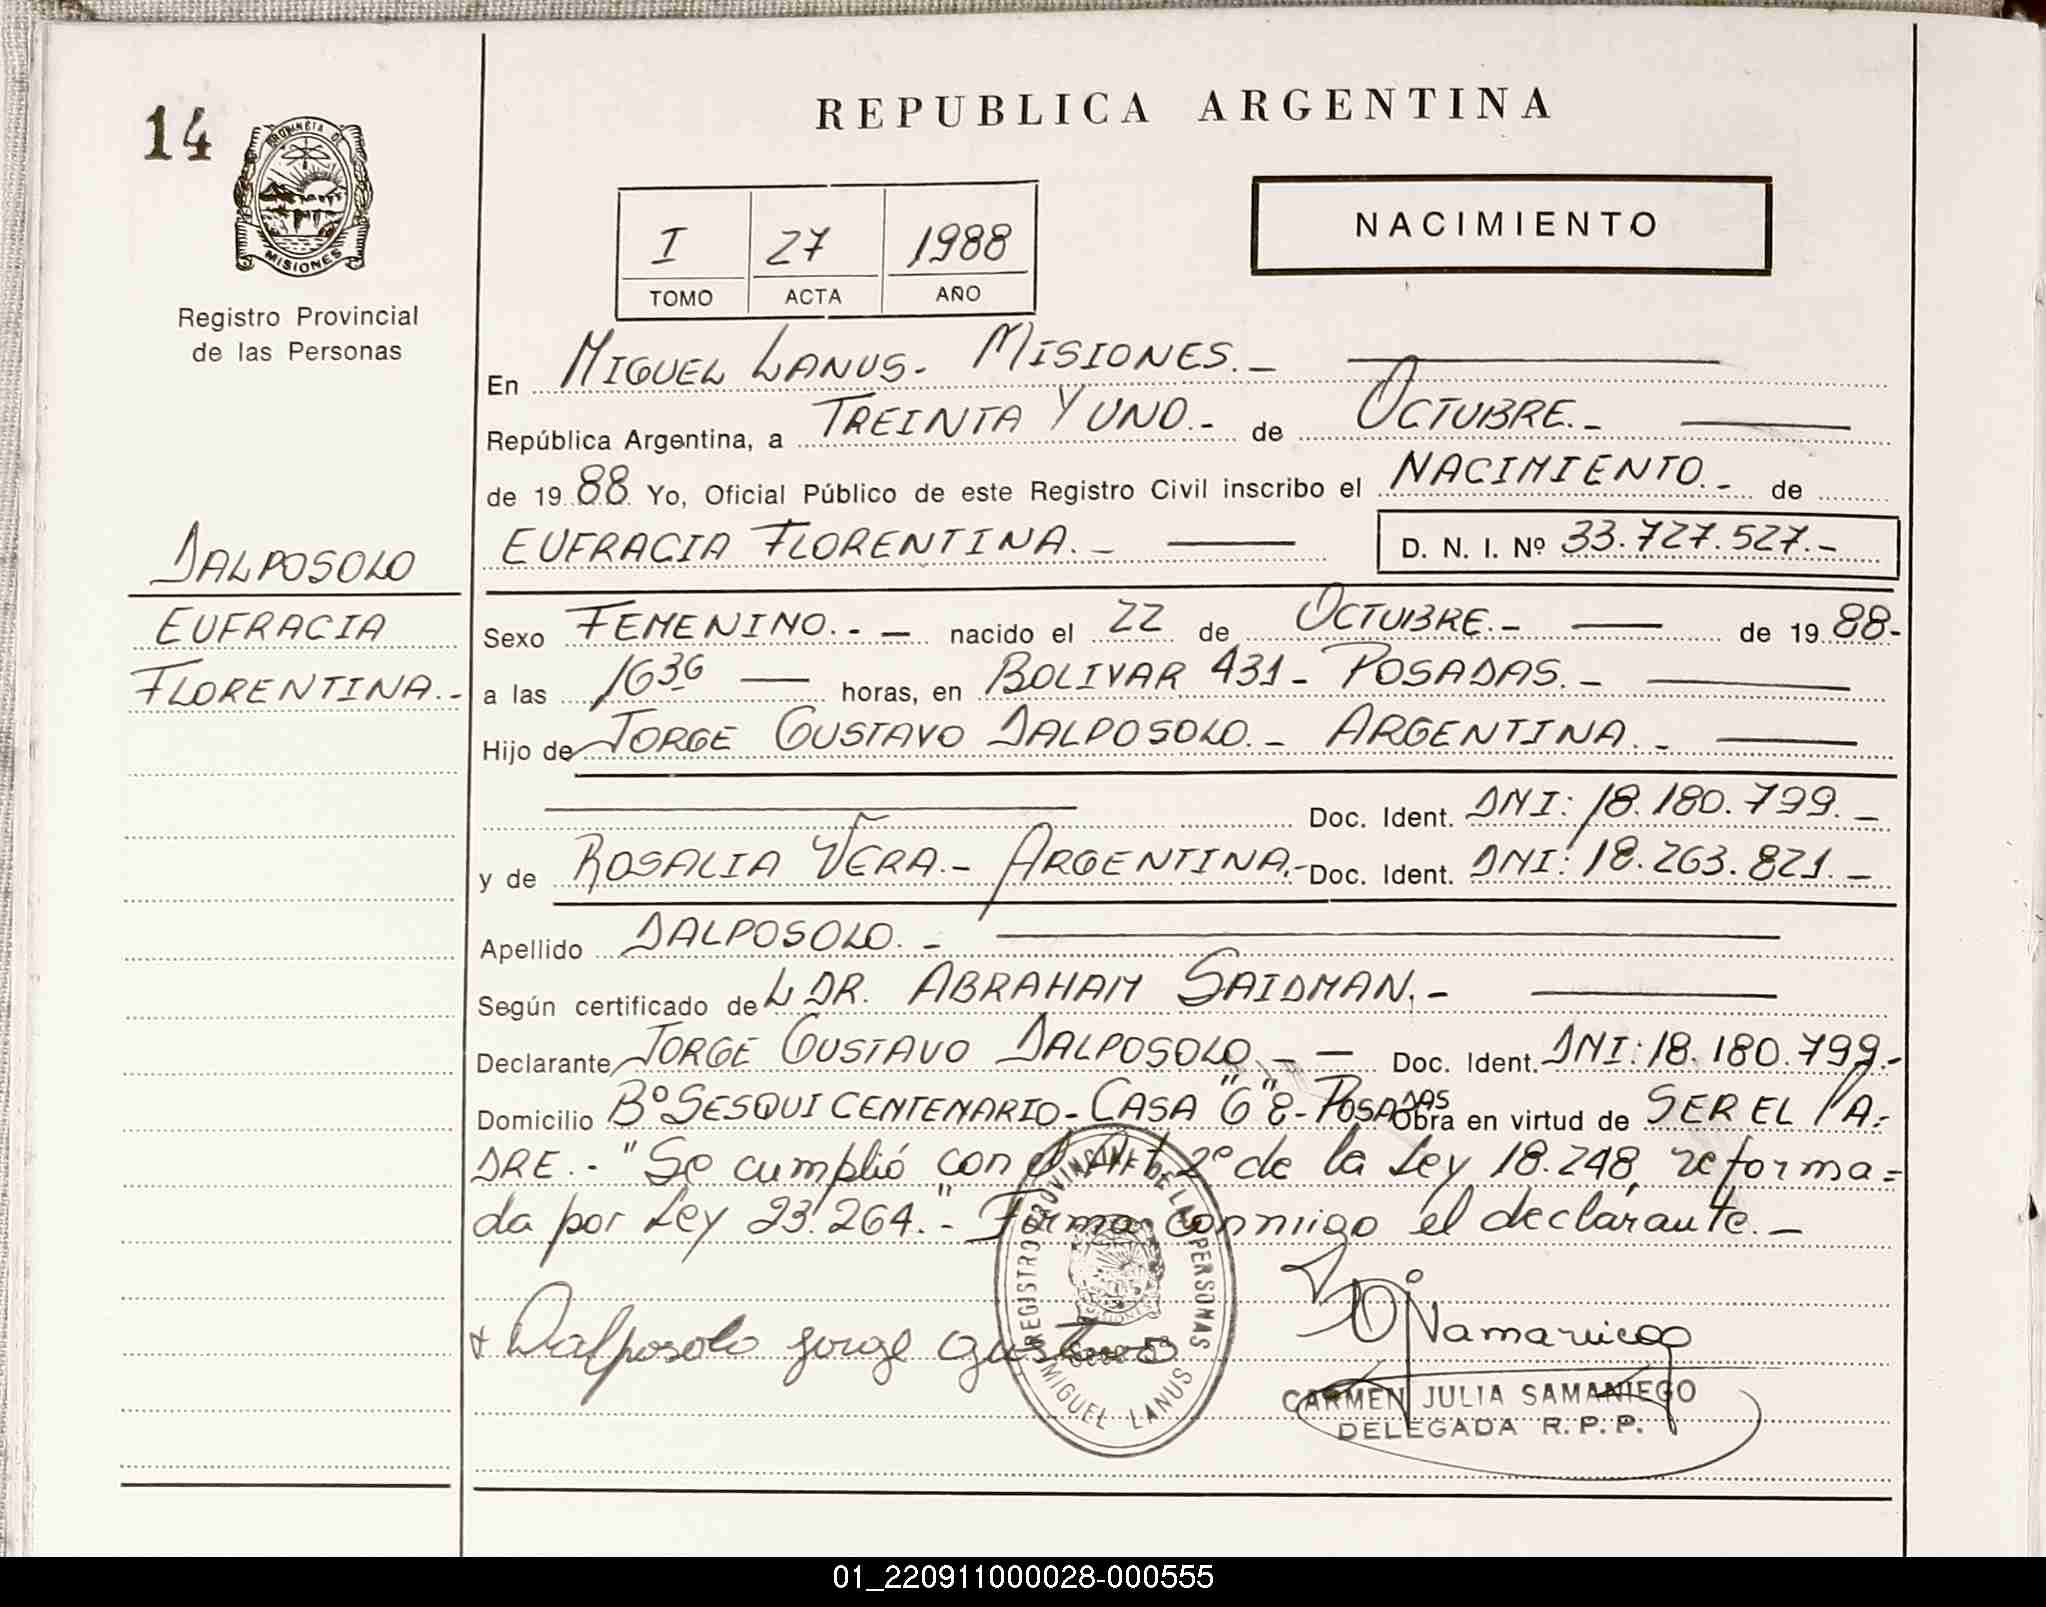 14
PROVINCIA DE
MISIONES
Registro Provincial
de las Personas
REPUBLICA ARGENTINA
I 27 1988
TOMO ACTA AÑO
NACIMIENTO
En MIGUEL LANUS. MISIONES.-
República Argentina, a TREINTA Y UNO.- de OCTUBRE.-
de 19 88. Yo, Oficial Público de este Registro Civil inscribo el NACIMIENTO.- de
EUFRACIA FLORENTINA.- D. N. I. Nº 33.727.527.-
DALPOSOLO
EUFRACIA
FLORENTINA.-
Sexo FEMENINO.- nacido el 22 de OCTUBRE.- de 19 88.-
a las 1630 horas, en BOLIVAR 431 - POSADAS.-
Hijo de JORGE GUSTAVO DALPOSOLO.- ARGENTINA.-
Doc. Ident. DNI: 18.180.799.-
y de ROSALIA VERA.- ARGENTINA.- Doc. Ident. DNI: 18.263.821.-
Apellido DALPOSOLO.-
Según certificado de L DR. ABRAHAM SAIDMAN.-
Declarante JORGE GUSTAVO DALPOSOLO.- Doc. Ident. DNI: 18.180.799.-
Domicilio Bº SESQUICENTENARIO - CASA "G" 8 - POSADAS Obra en virtud de SER EL PA-
DRE.- "Se cumplió con el Art 2º de la Ley 18.248, reforma=
da por Ley 23.264."- Firma conmigo el declarante.-
Dalposolo Jorge Gustavo
REGISTRO PROVINCIAL DE LAS PERSONAS
MIGUEL LANUS
CARMEN JULIA SAMANIEGO
DELEGADA R.P.P.
01_220911000028-000555